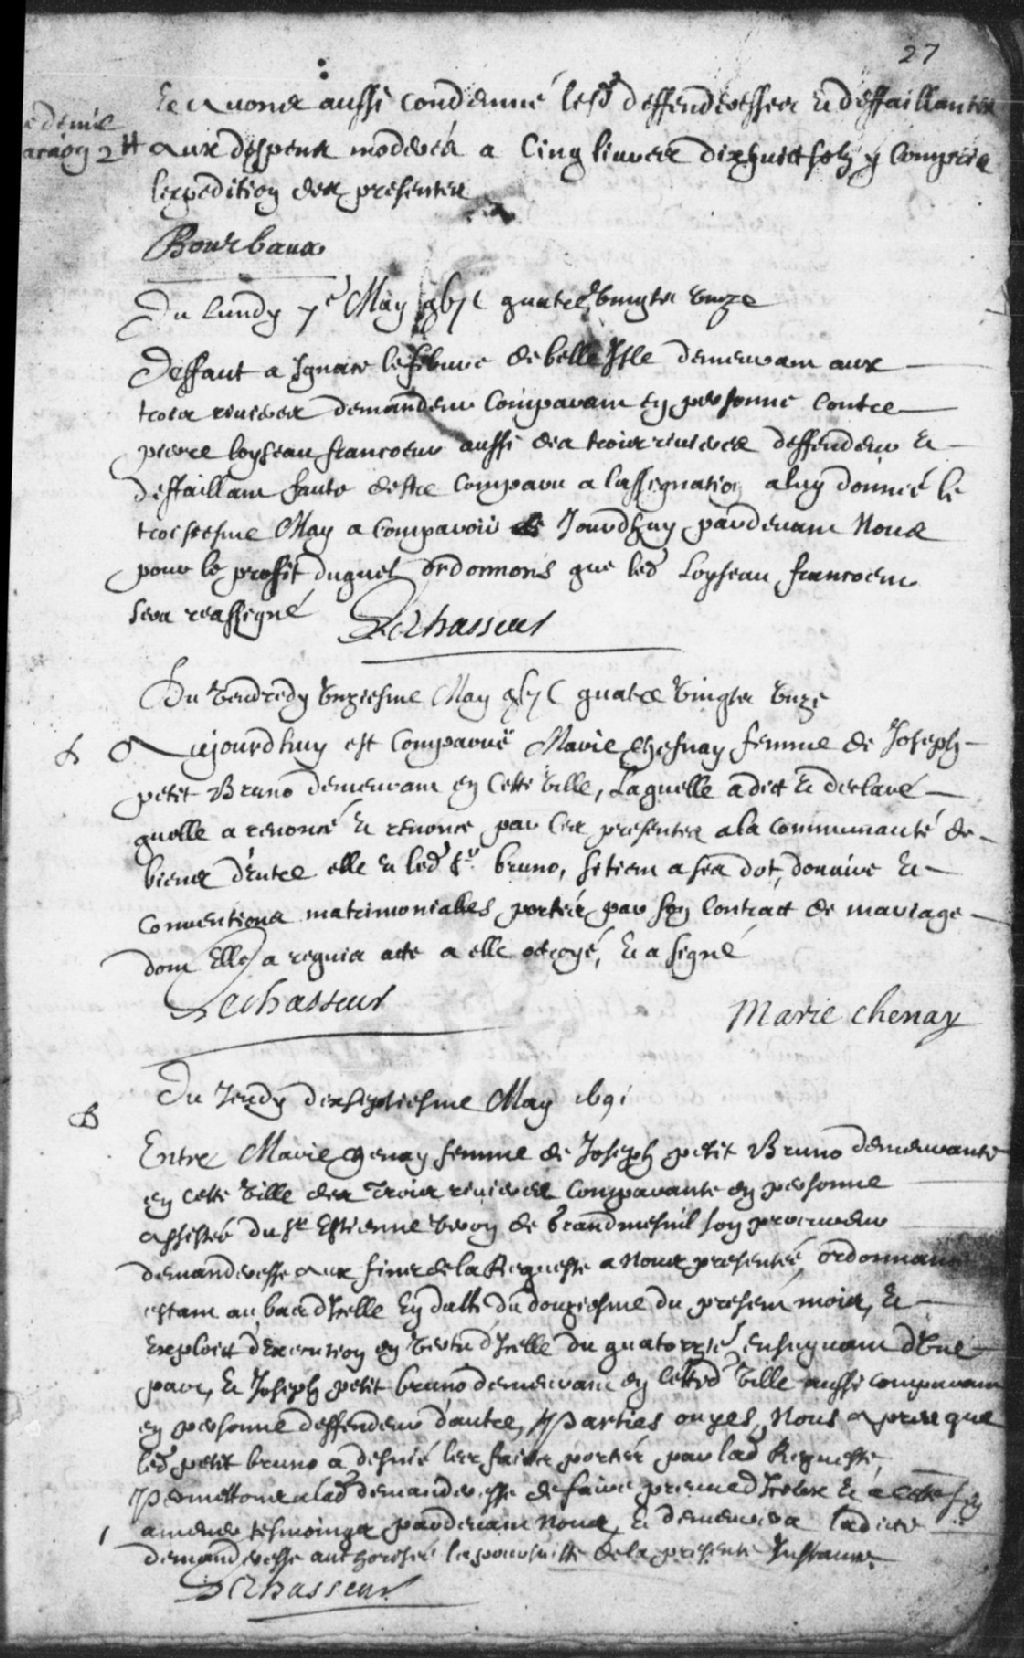 27
et avons aussi condemné lesd deffenderesses et deffaillantes
aux despens moderés a Cinq livres dixhuict solz y Compris
lexpedition des presentes
Bourbaux
Du Lundy 7e May gbjC quatre vingts unze
Deffaut a Ignace lefebure de belle Isle demeurant aux
trois rivieres demandeur Comparant en personne Contre
pierre loyseau francoeur aussi des trois rivieres deffendeur et
deffaillant faute destre Comparu a lassignation a luy donnée le
troisiesme May a Comparoir Jourdhuy pardevant Nous
pour le profit duquel ordonnons que led Loyseau francoeur
sera reassigné Lechasseur
Du Vendredy unziesme May gbjC quatre vingts unze
Aujourdhuy est Comparuë Marie chesnay femme de Joseph
petit Bruno demeurant en Cette Ville, Laquelle a dict et declaré
quelle a renoncé et renonce par Ces presentes a la Communauté de
biens d'entre elle et led Sr bruno, se tient a ses dot, douaire et
Conventions matrimonialles portéés par son Contract de mariage
dont Elle a requis acte a elle octroyé, et a signé
Lechasseur
Marie chenay
Du Jeudy dixseptiesme May 1691
Entre Marie chenay femme de Joseph petit Bruno demeurante
en cette Ville des Trois rivieres Comparante en personne
assistée du Sr Estienne Veron de Grandmesnil son procureur
demanderesse aux fins de la Requeste a Nous presentée, ordonnance
estant au bas d'Icelle En datte du douziesme du present mois, et
Exploict d'Execution en Vertu d'Icelle du quatorze ensuyvant d'Une
part, et Joseph petit bruno demeurant en Cetted Ville aussi comparant
en personne deffendeur d'autre, Parties ouyes, Nous apres que
led petit bruno a desnié les faits portéz par lad Requeste,
Permettons a lad demanderesse de faire preuve d'Iceux et a cette fin
amener tesmoings pardevant Nous, et demeurera ladicte
demanderesse authorisée la poursuitte de la presente Instance
Lechasseur